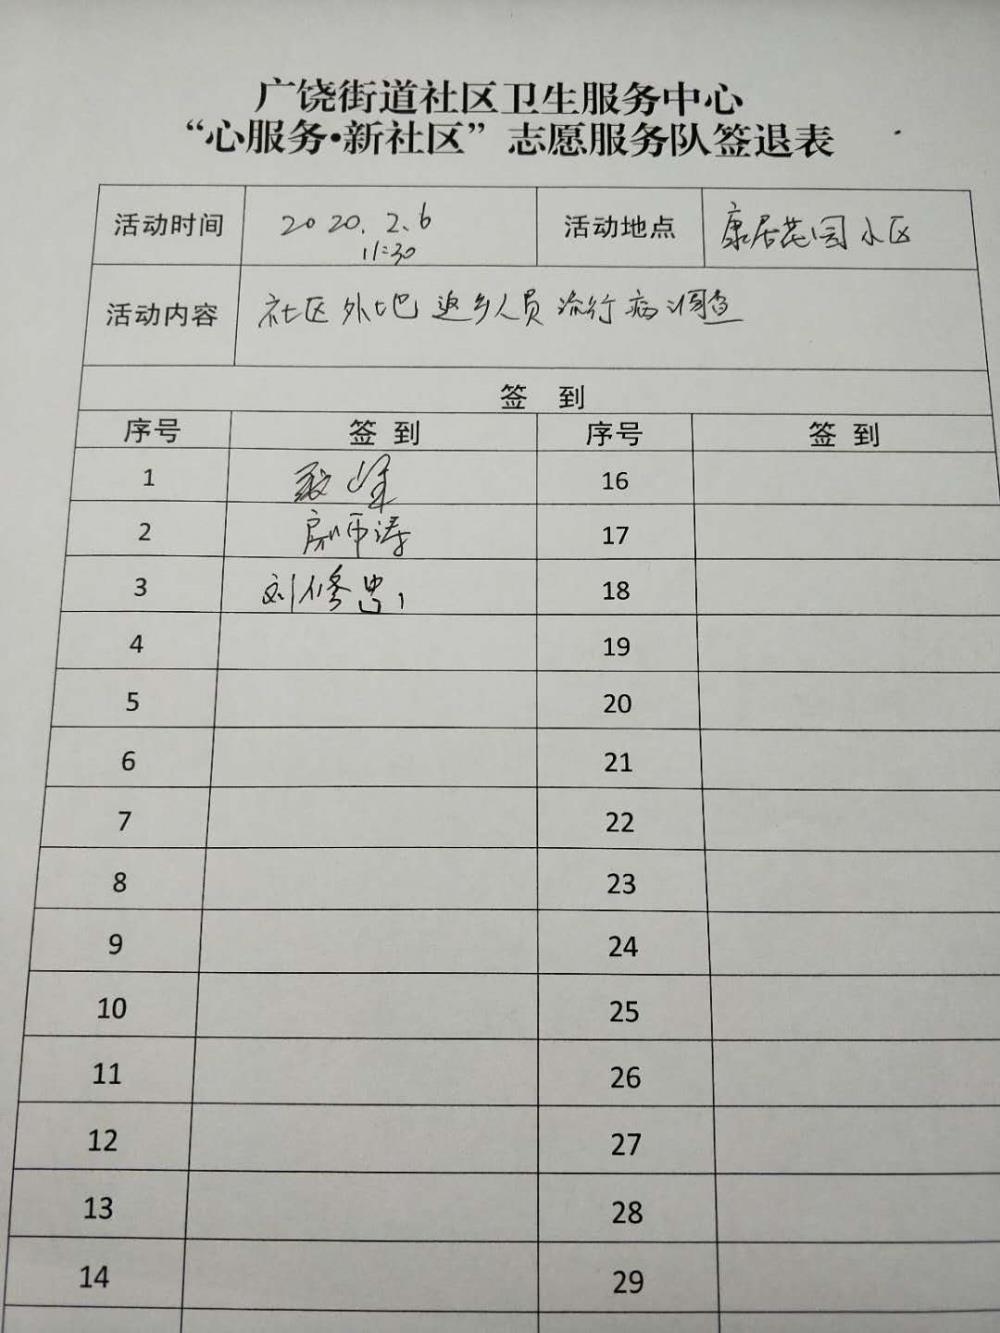 广饶街道社区卫生服务中心
“心服务·新社区”志愿服务队签退表
活动时间 2020.2.6 活动地点 康居花园小区
11:30
活动内容 社区外地返乡人员流行病调查
签 到
序号 签 到 序号 签 到
1 16
2 17
3 刘修忠 18
4 19
5 20
6 21
7 22
8 23
9 24
10 25
11 26
12 27
13 28
14 29